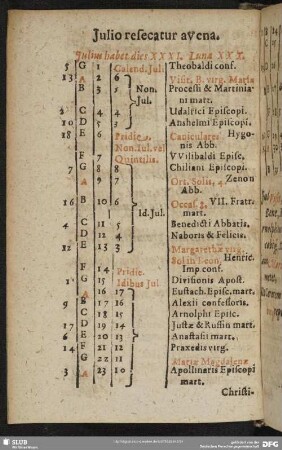 Julio resecatur avena.
Julius habet dies XXXI. Luna XXX.
5 G 1 Calend. Jul. Theobaldi conf.
13 A 2 6 Visit. B. virg. Maria
B 3 5 Non. Processi & Martinia-
Jul. ni mart.
2 C 4 Udalrici Episcopi
10 D 5 3 Anshelmi Episcopi
18 E 6 Pridie Caniculares Hygo-
Non. Jul. vel nis Abb.
F 7 Quintilis. VVilibaldi Episc.
7 G 8 8 Chiliani Episcopi
A 9 7 Ort. Solis, 4. Zenon
Abb.
16 B 10 6 Occas. VII. Fratr.
Id. Jul. mart.
C 11 5 Benedicti Abbatis,
4 D 12 4 Naboris & Felicis,
12 E 13 3 Margarethæ virg.
Sol in Leon, Henric.
F 14 Pridie Imp conf.
1 G 15 Idibus Jul Divisionis Apost.
A 16 17 Eustach. Episc. mart.
9 B 17 16 Alexii confessoris.
C 18 15 Arnolphi Episc.
17 D 19 14 Justæ & Ruffin mart.
6 E 20 13 Anastasii mart.
14 F 21 12 Praxedis virg.
G 22 11 Mariæ Magdalenæ
3 A 23 10 Apollinaris Episcopi
mart.
Christi-
SLUB
DFG